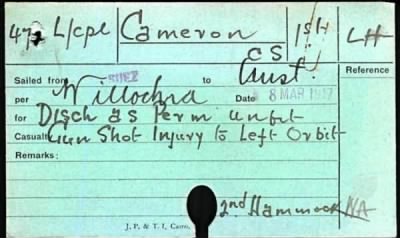 L/cpl Cameron 1st LH
C S
Reference
Sailed from SUEZ to Aust.
per Willochra Date 8 MAR 1917
for Disch as Perm unfit
Casualty Gun Shot Injury to Left Orbit
Remarks:
2nd Hammock NA
J. P. & T. I., Cairo,